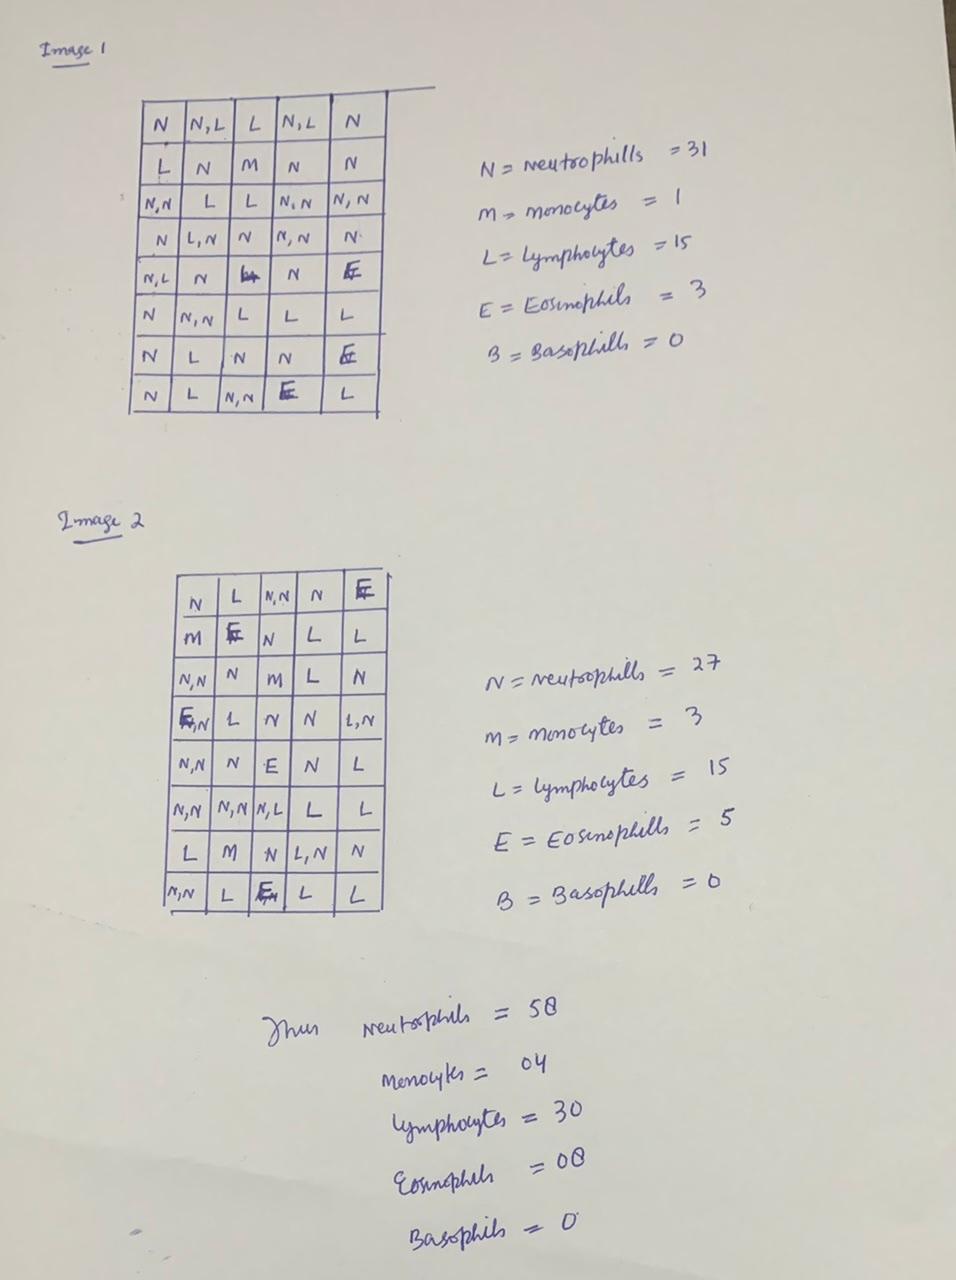 Image 1
N N,L L N,L N
L N M N N
N,N L L N,N N,N
N L,N N N,N N
N,L N L N E
N N,N L L L
N L N N E
N L N,N E L
N = Neutrophills = 31
M = monocytes = 1
L = Lymphocytes = 15
E = Eosinophils = 3
B = Basophills = 0
Image 2
N L N,N N E
M E N L L
N,N N M L N
E,N L N N L,N
N,N N E N L
N,N N,N N,L L L
L M N L,N N
N,N L E L L
N = Neutrophills = 27
M = Monocytes = 3
L = Lymphocytes = 15
E = Eosinophills = 5
B = Basophills = 0
Thus Neutrophils = 58
Monocytes = 04
Lymphocytes = 30
Eosinophils = 08
Basophils = 0